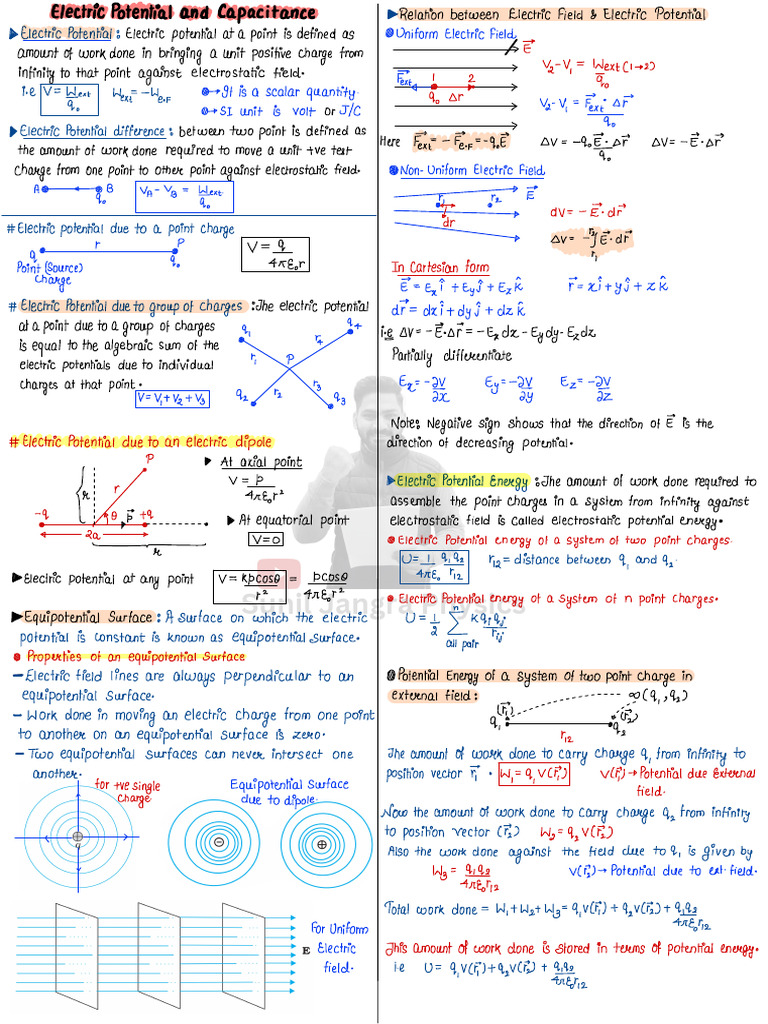 Electric Potential and Capacitance
▶Electric Potential : Electric potential at a point is defined as
amount of work done in bringing a unit positive charge from
infinity to that point against electrostatic field.
i.e V = W_ext/q₀ W_ext = -W_e.F → It is a scalar quantity.
→ SI unit is volt or J/C
▶Electric Potential difference : between two point is defined as
the amount of work done required to move a unit +ve test
charge from one point to other point against electrostatic field.
A B q₀ V_A - V_B = W_ext/q₀
# Electric potential due to a point charge
q r P q₀ V = q/4πε₀r
Point (Source)
Charge
# Electric Potential due to group of charges : The electric potential
at a point due to a group of charges
is equal to the algebraic sum of the
electric potentials due to individual
charges at that point.
V = V₁ + V₂ + V₃
q₁ q₄ r₁ r₄ P q₂ r₂ r₃ q₃
# Electric Potential due to an electric dipole
P r r θ -q p⃗ +q 2a r
▶ At axial point
V = p/4πε₀r²
▶ At equatorial point
V=0
▶Electric potential at any point V = kpcosθ/r² = pcosθ/4πε₀r²
▶Equipotential Surface : A surface on which the electric
potential is constant is known as equipotential surface.
Properties of an equipotential Surface
– Electric field lines are always perpendicular to an
equipotential surface.
– Work done in moving an electric charge from one point
to another on an equipotential surface is zero.
– Two equipotential surfaces can never intersect one
another.
for +ve single
Charge
q
Equipotential Surface
due to dipole.
For Uniform
E Electric
field.
▶Relation between Electric Field & Electric Potential
Uniform Electric Field
E⃗
F⃗_ext 1 2 q₀ Δr
V₂-V₁ = W_ext (1→2)/q₀
V₂-V₁ = F⃗_ext · Δr⃗/q₀
Here F⃗_ext = -F⃗_e.F = -q₀E⃗ ΔV = -q₀E⃗·Δr⃗/q₀ ΔV = -E⃗·Δr⃗
Non-Uniform Electric Field
r₁ r₂ E⃗ dr⃗
dV = -E⃗·dr⃗
ΔV = -∫_{r₁}^{r₂} E⃗·dr⃗
In Cartesian form
E⃗ = E_x î + E_y ĵ + E_z k̂ r⃗ = x î + y ĵ + z k̂
dr⃗ = dx î + dy ĵ + dz k̂
i.e ΔV = -E⃗·Δr⃗ = -E_x dx - E_y dy - E_z dz
Partially differentiate
E_x = -∂V/∂x E_y = -∂V/∂y E_z = -∂V/∂z
Note: Negative sign shows that the direction of E⃗ is the
direction of decreasing potential.
▶Electric Potential Energy : The amount of work done required to
assemble the point charges in a system from infinity against
electrostatic field is called electrostatic potential energy.
Electric Potential energy of a system of two point charges.
U = 1/4πε₀ q₁q₂/r₁₂ r₁₂ = distance between q₁ and q₂.
Electric Potential energy of a System of n point charges.
U = 1/2 Σ^n_{all pair} k q_i q_j/r_ij
Potential Energy of a system of two point charge in
external field :
∞(q₁, q₂)
q₁ (r₁⃗) r₁₂ (r₂⃗) q₂
The amount of work done to carry charge q₁ from infinity to
position vector r₁⃗ . W₁ = q₁V(r₁⃗) V(r₁⃗) → Potential due External
field.
Now the amount of work done to carry charge q₂ from infinity
to position vector (r₂⃗) W₂ = q₂V(r₂⃗)
Also the work done against the field due to q₁ is given by
W₃ = q₁q₂/4πε₀r₁₂ V(r₂) → Potential due to ext. field.
Total work done = W₁+W₂+W₃ = q₁V(r₁⃗) + q₂V(r₂⃗) + q₁q₂/4πε₀r₁₂
This amount of work done is stored in terms of potential energy.
i.e U = q₁V(r₁⃗) + q₂V(r₂⃗) + q₁q₂/4πε₀r₁₂
Sunil Jangra Physics